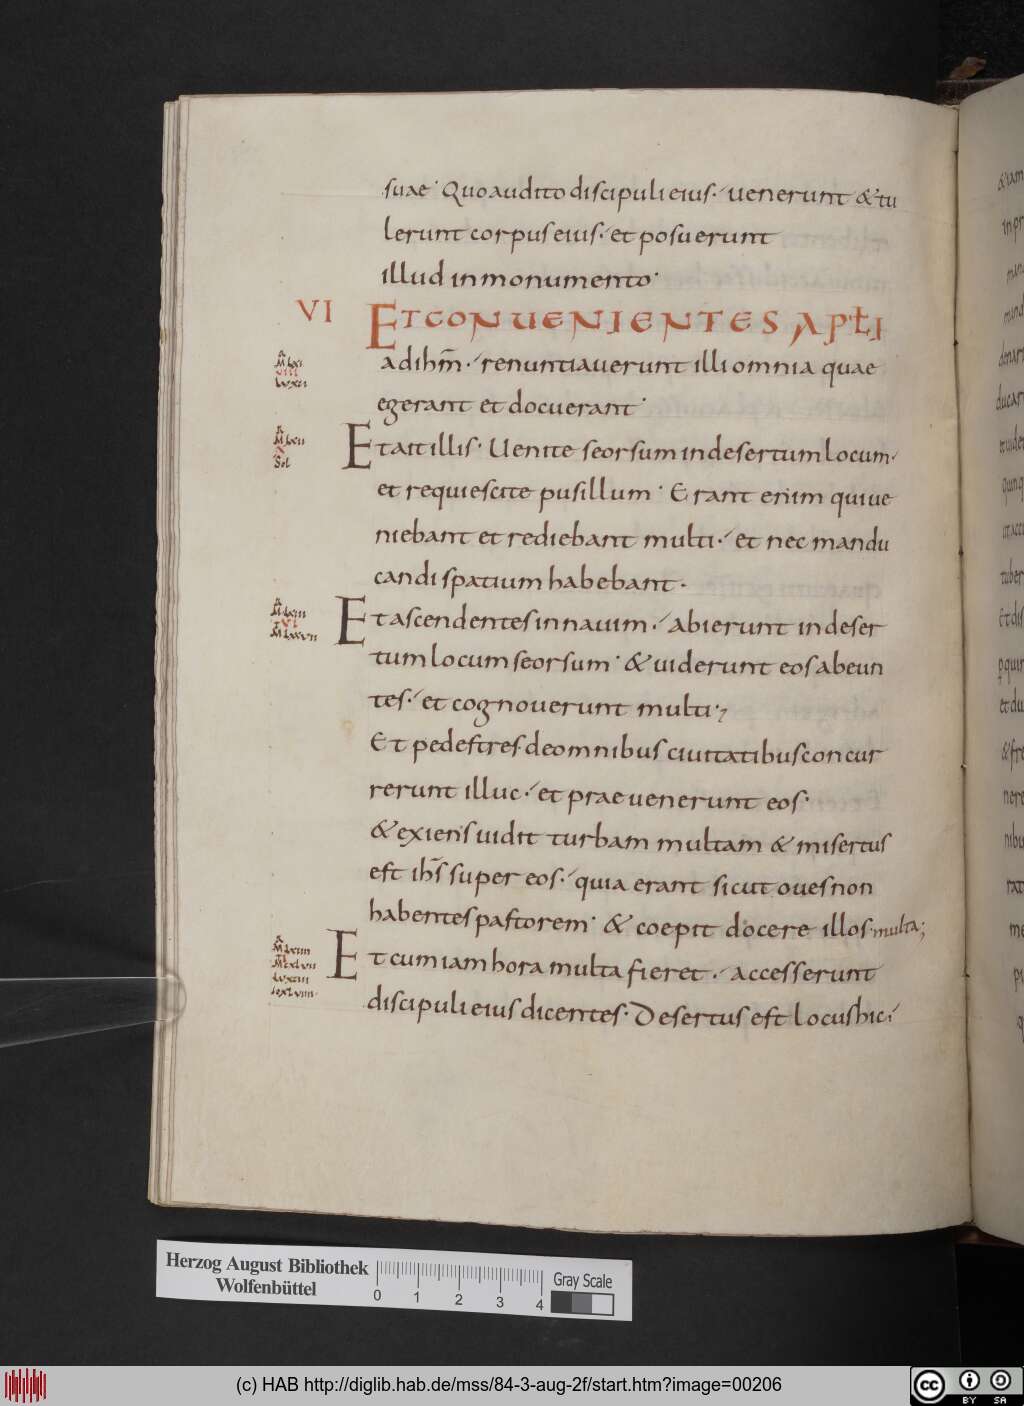 suae· Quo audito discipuli eius· uenerunt & tu
lerunt corpus eius· et posuerunt
illud in monumento·
VI
ET CONUENIENTES APƚI
ad ihm̅· renuntiauerunt illi omnia quae
egerant et docuerant·
Et ait illis· Uenite seorsum in desertum locum·
et requiescite pusillum· Erant enim qui ue
niebant et rediebant multi· et nec mandu
candi spatium habebant·
Et ascendentes in nauim· abierunt in deser
tum locum seorsum· & uiderunt eos abeun
tes· et cognouerunt multi·,
Et pedestres de omnibus ciuitatibus concur
rerunt illuc· et praeuenerunt eos·
& exiens uidit turbam multam & misertus
est ihs̅ super eos· quia erant sicut oues non
habentes pastorem· & coepit docere illos· multa;
Et cum iam hora multa fieret· accesserunt
discipuli eius dicentes· Desertus est locus hic·
Herzog August Bibliothek
Wolfenbüttel
0 1 2 3 4
Gray Scale
(c) HAB http://diglib.hab.de/mss/84-3-aug-2f/start.htm?image=00206
cc BY SA